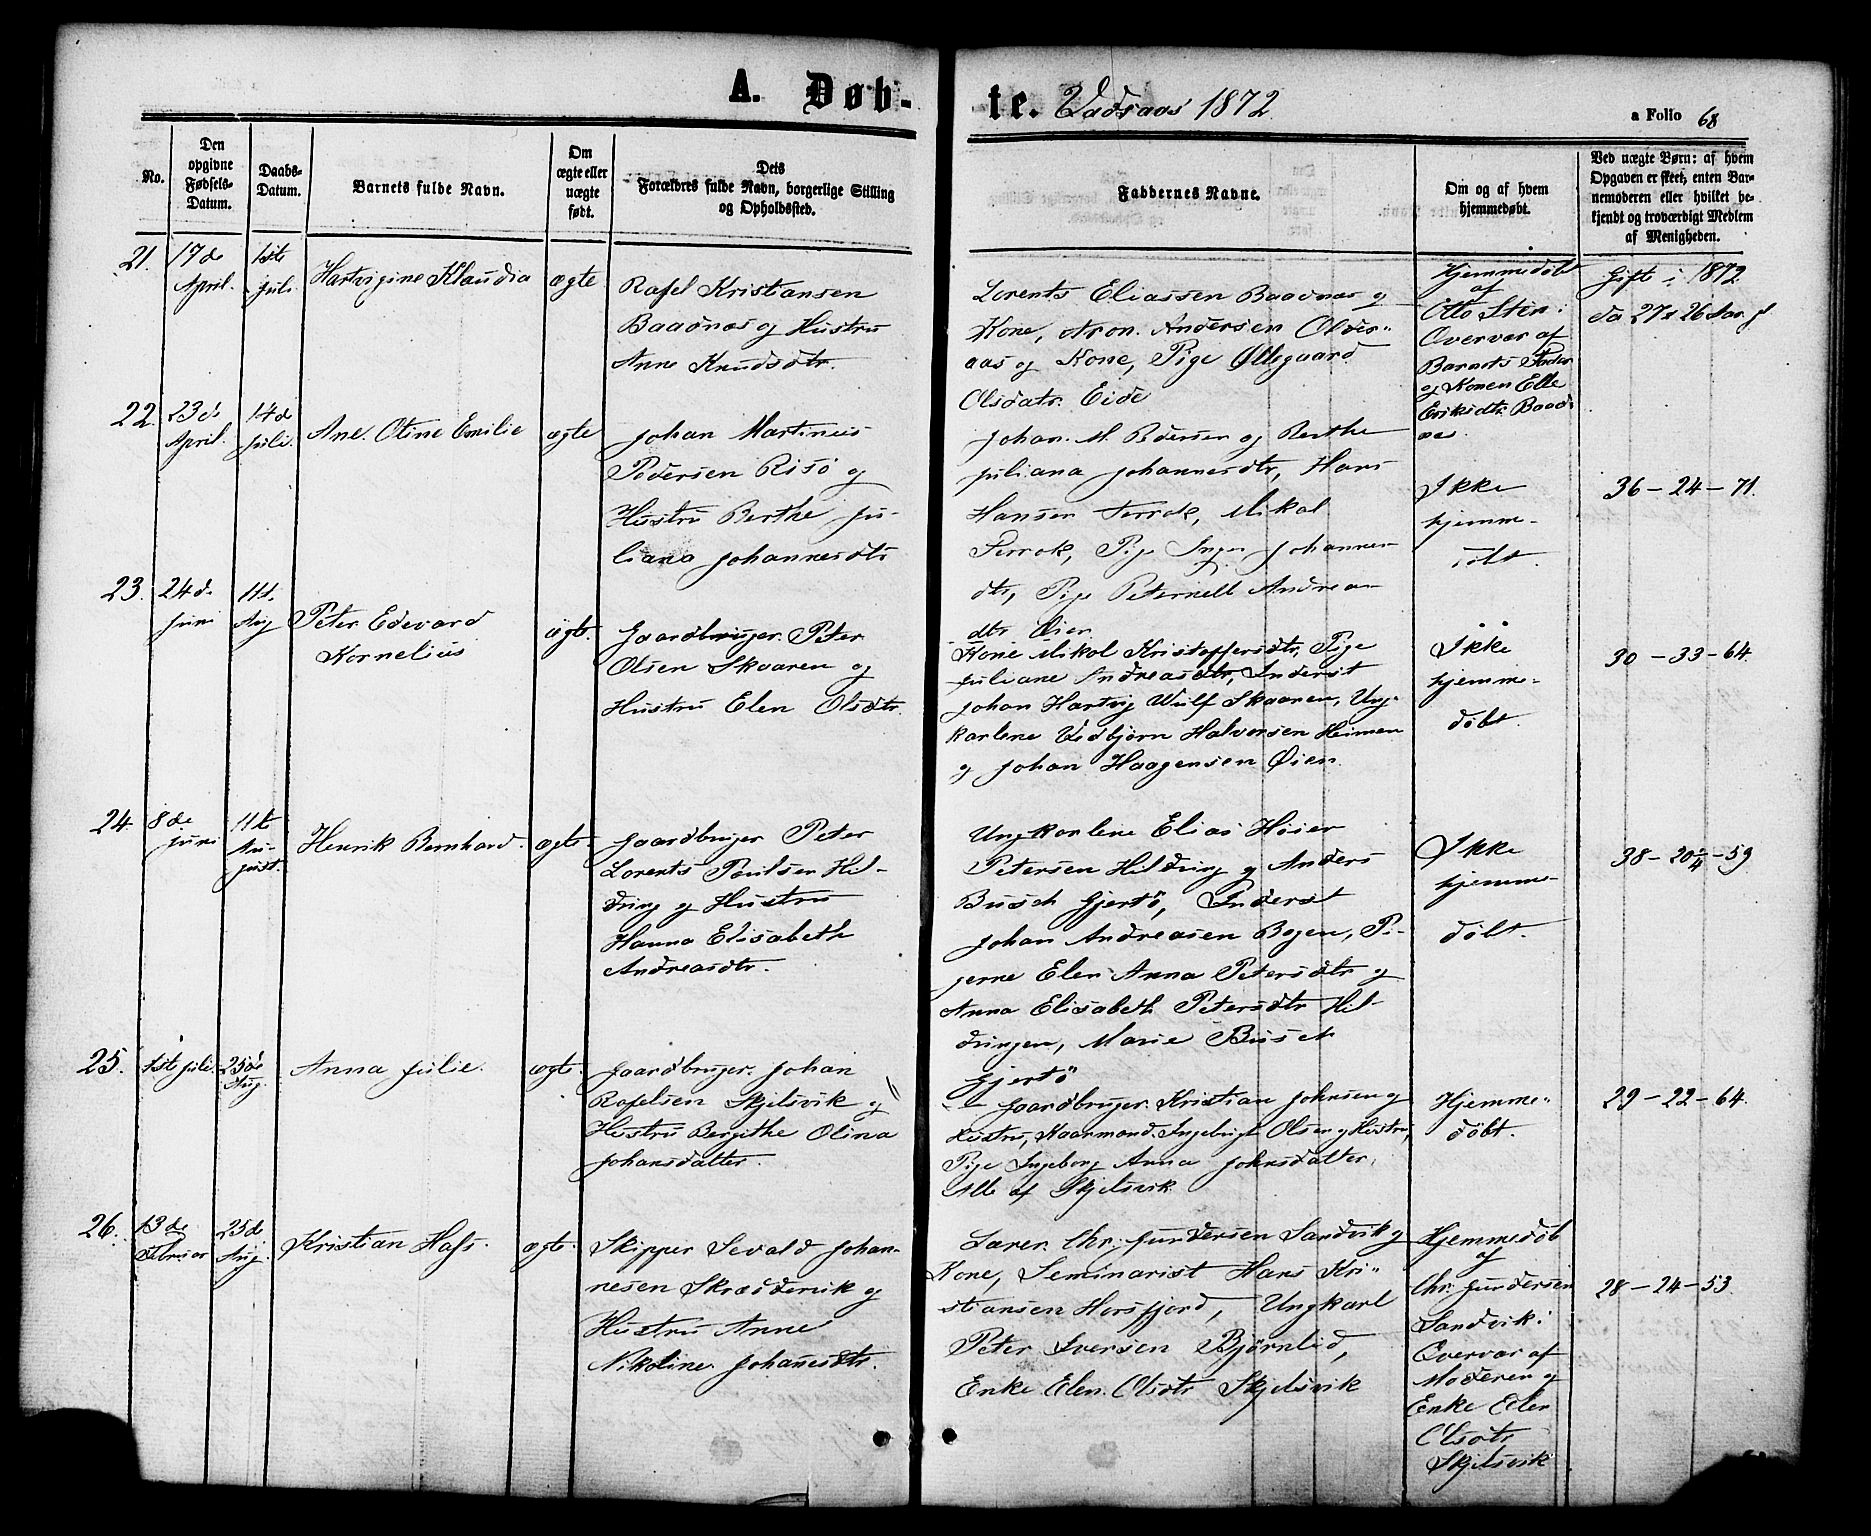 A. Døb-
te. Vadsaas 1872
a Folio 68
No.
Den
opgivne
Fødsels-
Datum.
Daabs-
Datum.
Barnets fulde Navn.
Om
ægte eller
uægte
født.
Dets
Forældres fulde Navn, borgerlige Stilling
og Opholdssted.
Faddernes Navne.
Om og af hvem
hjemmedøbt.
Ved uægte Børn: af hvem
Opgaven er skeet, enten Bar-
nemoderen eller hvilket be-
kjendt og troværdigt Medlem
af Menigheden.
21.
17de
April.
1ste
Juli.
Hartvigine Klaudia
ægte
Rafel Kristiansen
Baadnæs og Hustru
Anne Knudsdtr.
Lorents Eliassen Baadnæs og
Kone, Aron Andersen Older-
aas og Kone, Pige Ollegaard
Olsdatr. Eide
Hjemmedøbt
af
Otto Sten:
Overvær af
Barnets Fader
og Konen Elle
Eriksdtr. Baad-
næs.
Gift i 1872
22.
23de
April.
14de
Juli.
Ane Oline Emilie
ægte
Johan Martinus
Pedersen Risö og
Hustru Berthe Ju-
liana Johannesdtr
Johan M. Pedersen og Berthe
Juliana Johannesdtr, Hans
Hansen Terrak, Mikal
Terrak, Pige Inger Johannes
dtr, Pige Peternell Andreas
dtr Øien
Ikke
hjemme-
döbt.
36 - 24 - 71.
23.
24de
Juni
11te
Aug
Peter Edevard
Kornelius
ægte.
Gaardbruger Peter
Olsen Skaaren og
Hustru Elen Olsdtr.
Kone Mikal Kristoffersdtr, Pige
Juliane Andreasdtr, Inderst
Johan Hartvig Wulf Skaaren, Ung-
karlene Vedbjørn Halvorsen Heimen
og Johan Haagensen Øien.
Ikke
hjemme-
døbt.
30 - 33 - 64.
24.
8de
Juni
11te
Au-
gust.
Henrik Bernhard.
ægte.
Gaardbruger Peter
Lorents Poulsen Hil-
dring og Hustru
Hanna Elisabeth
Andreasdtr.
Ungkarlene Elias Høier
Petersen Hildring og Anders
Busch Gjertö, Inderst
Johan Andreasen Bogen, Pi-
gerne Elen Anna Petersdtr og
Anna Elisabeth Petersdtr Hil-
dringen, Marie Busch
Gjertö
Ikke
hjemme-
döbt.
25.
1ste Juli.
25de
Aug.
Anna Julie.
ægte.
Gaardbruger Johan
Rafelsen Skjelsvik og
Hustru Bergithe Olina
Johansdatter.
Gaardbruger Kristian Johnsen og
Hustru, Kaarmand Ingebrigt Olsen og Hustru,
Pige Ingeborg Anna Johnsdatter,
Alle af Skjelsvik
Hjemme-
döbt.
29 - 22 - 64.
26.
13de
Februar
25de
Aug.
Kristian Hass.
ægte.
Skipper Sevald Johan-
nesen Skræddervik og
Hustru Anne
Nikoline Johanesdtr.
Lærer Chr. Gundersen Sandvik og
Kone, Seminarist Hans Kri-
stiansen Horsfjord, Ungkarl
Peter Iversen Bjørnlid,
Enke Elen Olsdtr Skjelsvik
Hjemmedøb
af
Chr. Gundersen
Sandvik:
Overvær af
Moderen og
Enke Elen
Olsdtr
Skjelsvik
28 - 24 - 53.